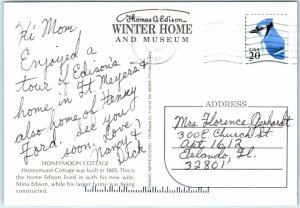 Thomas A. Edison
WINTER HOME
AND MUSEUM
USA
20
Hi Mom,
Enjoyed a
tour of Edison's
home, in Ft. Meyers &
also home of Haney
Ford. See you
soon. Love,
Nancy &
Dick
ADDRESS
Mrs. Florence Gerhardt
300 E Church St.
Apt. 1612
Orlando, Fl.
32801
HONEYMOON COTTAGE
Honeymoon Cottage was built in 1885. This is
the home Edison lived in with his new wife,
Mina Edison, while his larger home was being
constructed.